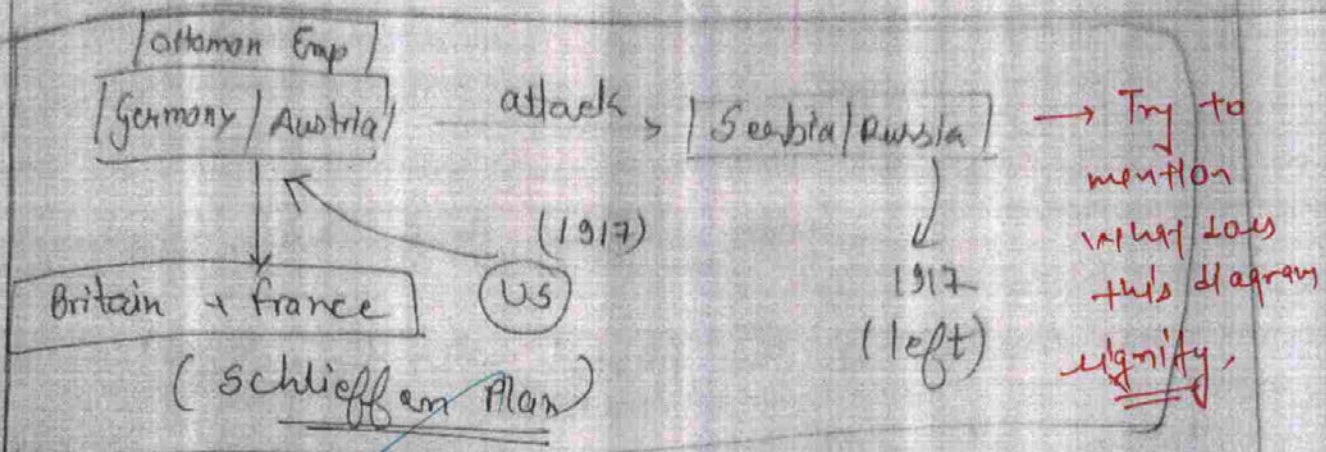 ottoman Emp
Germony / Austria
attack
Seerbia / Russia
Britain + france
US
(1917)
1917
(left)
(Schlieffen Plan)
→ Try to
mention
what does
this diagram
signify.